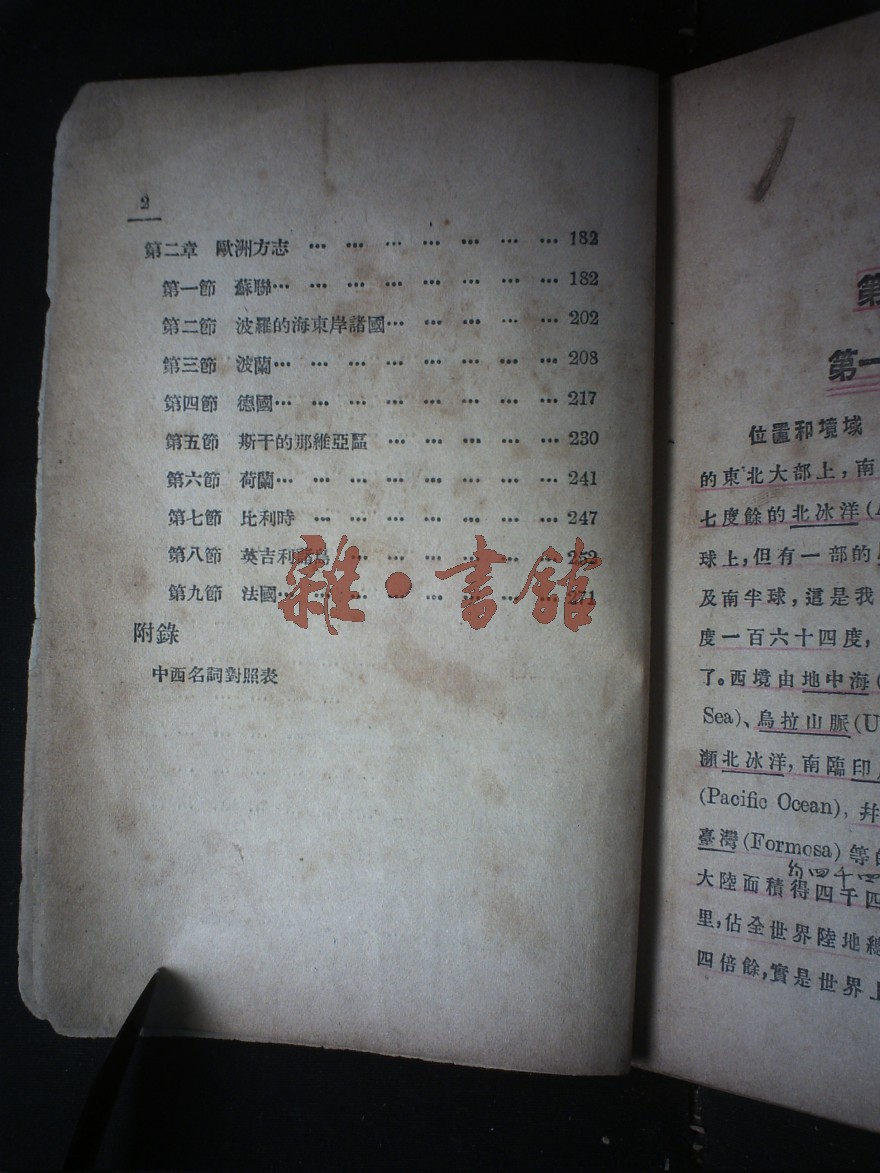 2
第二章 歐洲方志 … … … … … … … 182
第一節 蘇聯… … … … … … … … 182
第二節 波羅的海東岸諸國… … … … … 202
第三節 波蘭… … … … … … … … 208
第四節 德國… … … … … … … … 217
第五節 斯干的那維亞區 … … … … … 230
第六節 荷蘭… … … … … … … … 241
第七節 比利時 … … … … … … … 247
第八節 英吉利諸島 … … … … … … 252
第九節 法國… … … … … … … … 271
附錄
中西名詞對照表
雜·書館
第
第一
位置和境域
的東北大部上，南
七度餘的北冰洋(
球上，但有一部的
及南半球，這是我
度一百六十四度，
了。西境由地中海(
Sea)、烏拉山脈(U
瀕北冰洋，南臨印
(Pacific Ocean)，幷
臺灣(Formosa)等
約四千四
大陸面積得四千四
里，佔全世界陸地總
四倍餘，實是世界上